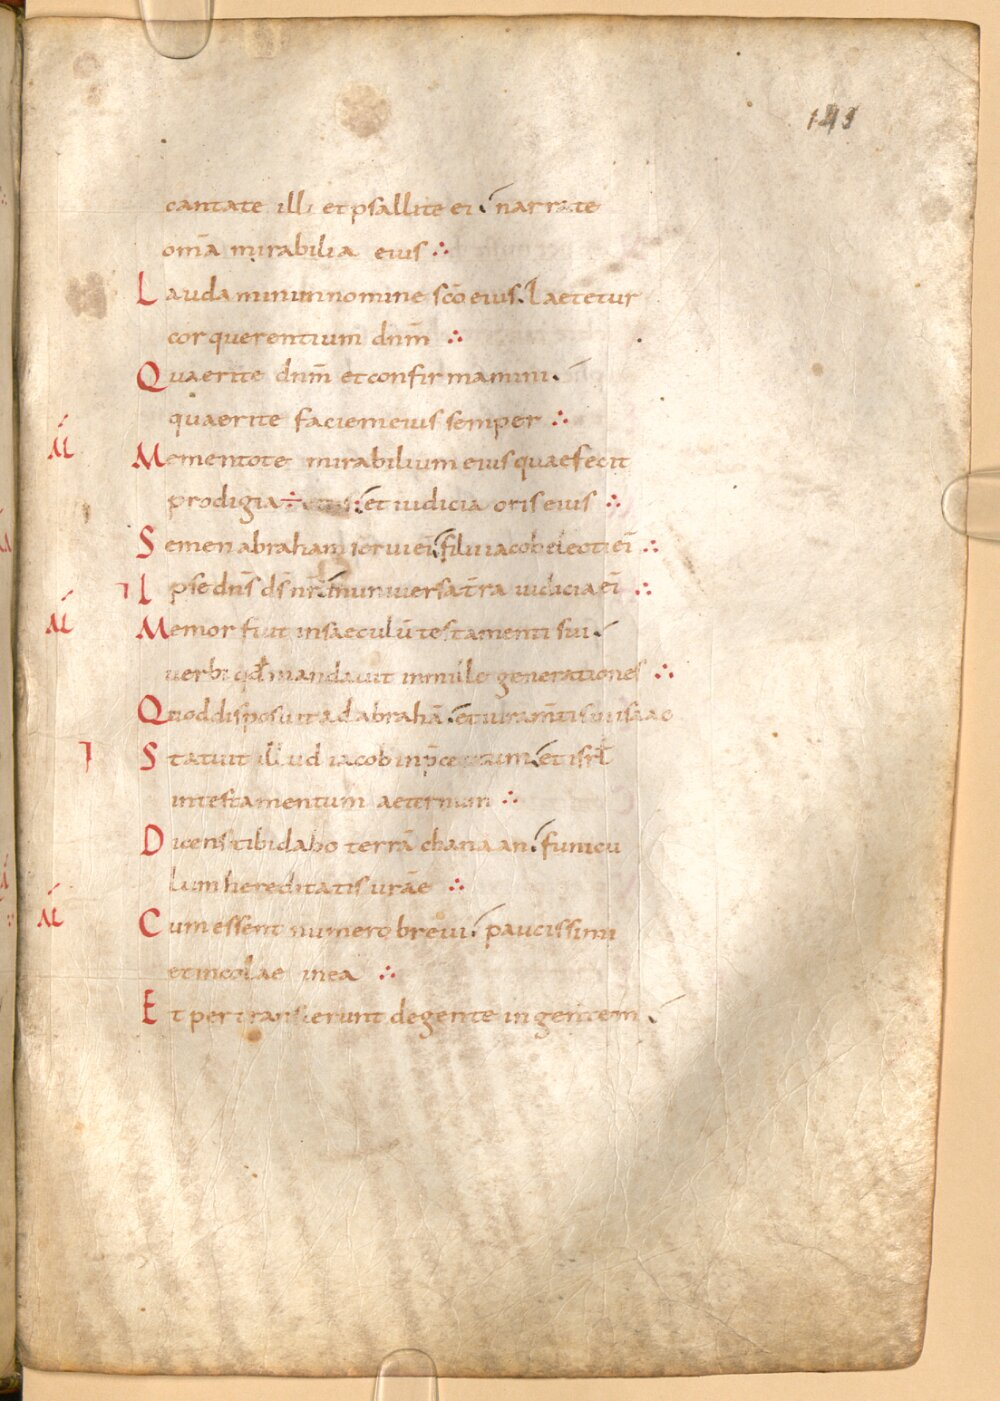 143
cantate illi et psallite ei. narrate
om̄a mirabilia eius
Laudaminin nomine sc̄o eius. Laetetur
cor querentium dn̄m
Quaerite dn̄m et confirmamini.
quaerite faciem eius semper
Mementote mirabilium eius quae fecit
prodigia et iudicia oris eius
Semen abraham serui ei filii iacob electi ei
Ipse dn̄s ds̄ nr̄ in uniuersa tr̄ra iudicia ei
Memor fuit in saeculū testamenti sui.
uerbi qd mandauit in mille generationes
Quod disposuit ad abrahā. et iuram̄ti sui isaac
Statuit illud iacob in p̄ceptum. et isrl
in testamentum aeternum
Dicens tibi dabo terrā chanaan. funicu
lum hereditatis urāe
Cum essent numero breui. paucissimi
et incolae in ea
Et pertransierunt de gente in gentem.